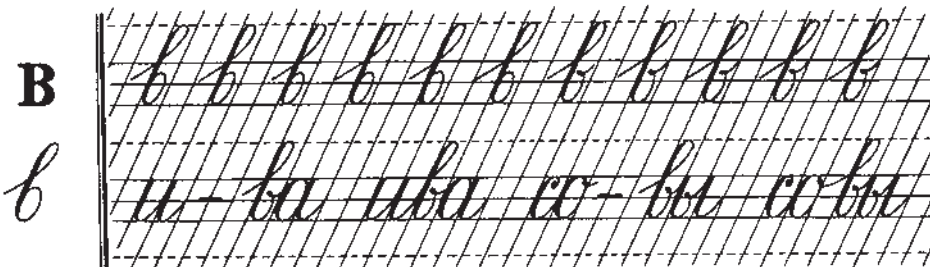 В в в в в в в в в в в в
в и - ва ива со - вы совы